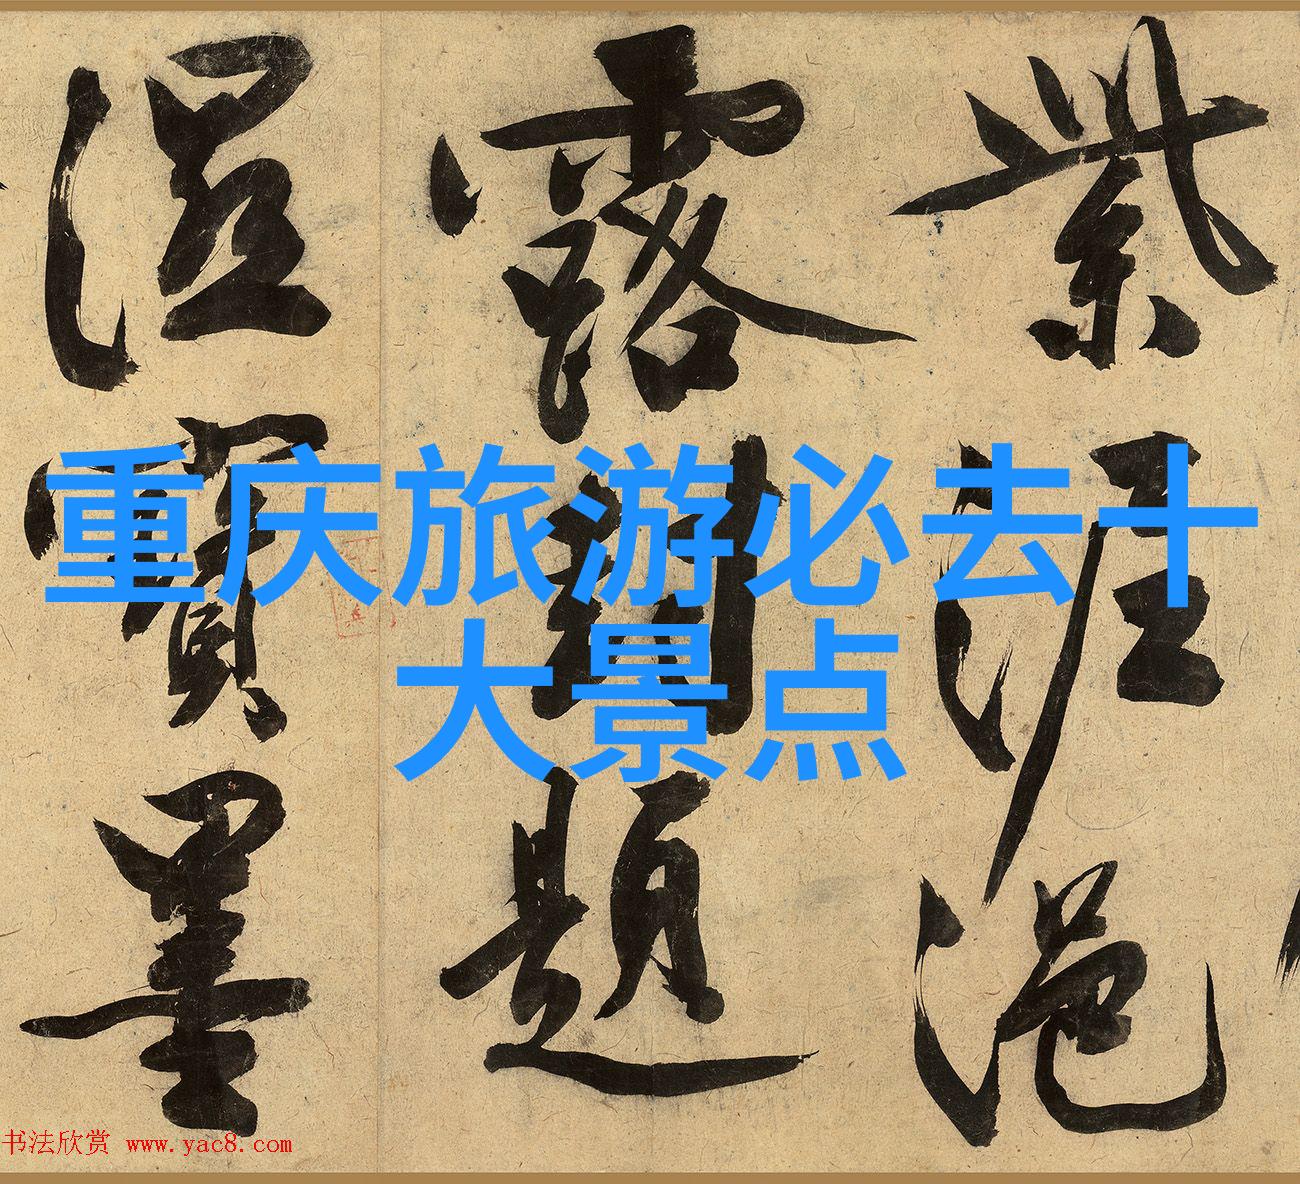 重庆旅游必去十
大景点
紫涯浥
露題
濕寶墨
书法欣赏 www.yac8.com